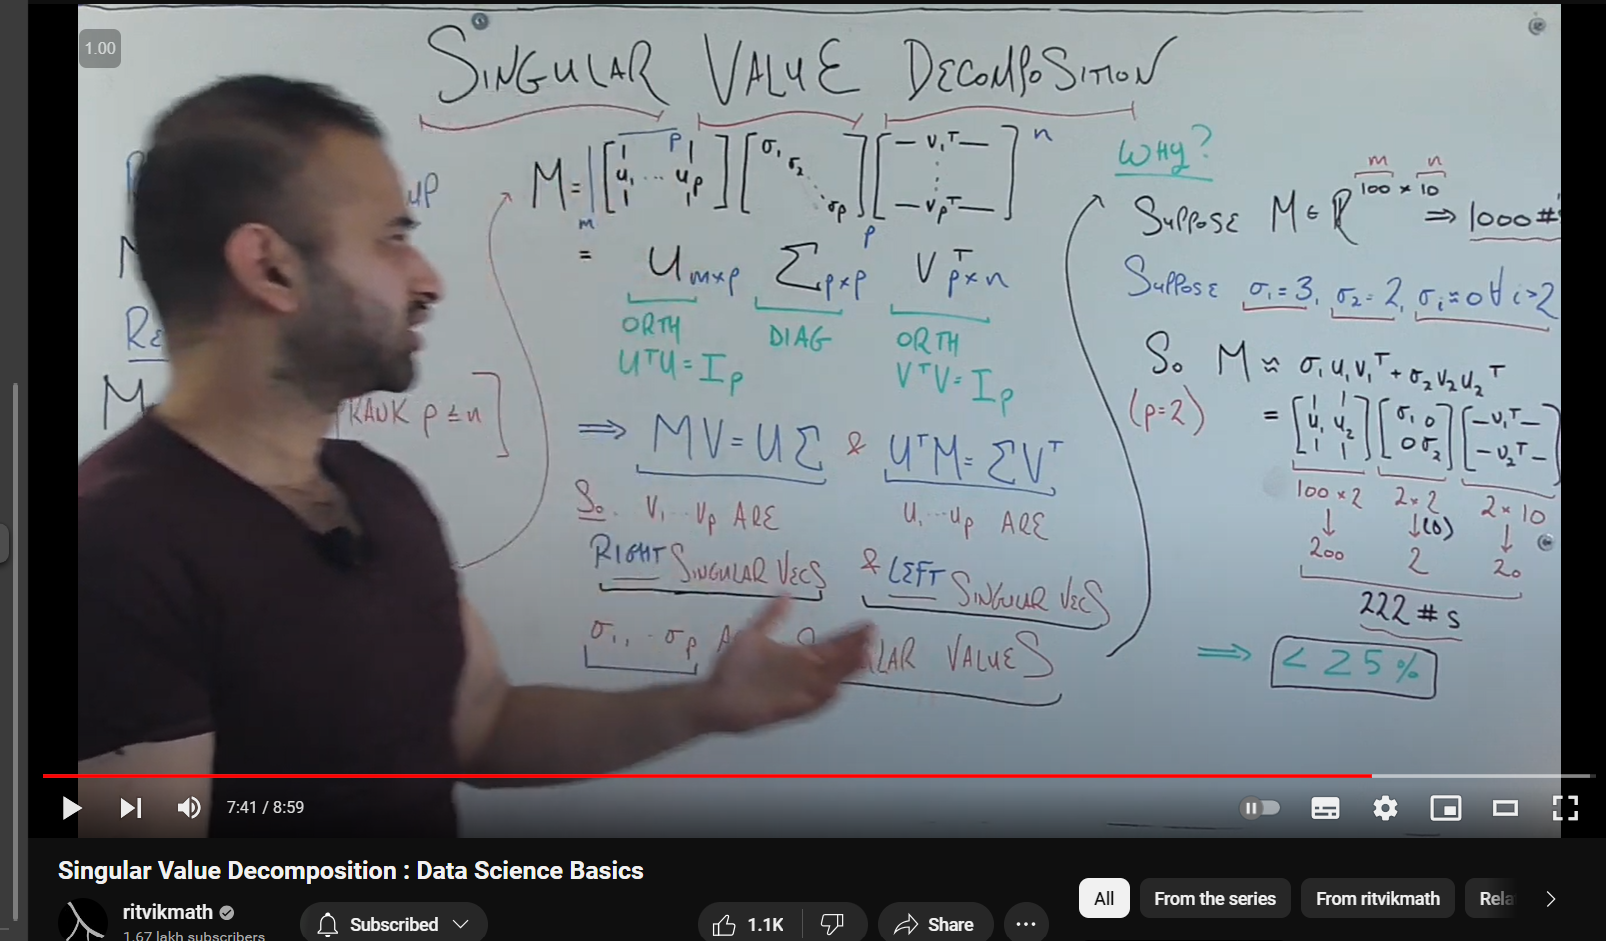 1.00
SINGULAR VALUE DECOMPOSITION
M = m [u₁ ... uₚ] p [σ₁ σ₂ ... σₚ] p [— v₁ᵀ — ⋮ — vₚᵀ —] n
= U m×p Σ p×p Vᵀ p×n
ORTH DIAG ORTH
UᵀU = Iₚ VᵀV = Iₚ
RANK p ≤ n
⇒ MV = UΣ & UᵀM = ΣVᵀ
So v₁ ... vₚ ARE u₁ ... uₚ ARE
RIGHT SINGULAR VECS & LEFT SINGULAR VECS
σ₁, ... σₚ VALUES
WHY?
m n
SUPPOSE M ∈ ℝ 100 × 10 ⇒ 1000 #
SUPPOSE σ₁ = 3, σ₂ = 2, σᵢ ≈ 0 ∀ i > 2
So M ≈ σ₁u₁v₁ᵀ + σ₂v₂u₂ᵀ
(p=2) = [u₁ u₂] [σ₁ 0 0 σ₂] [— v₁ᵀ — — v₂ᵀ —]
100 × 2 2 × 2 2 × 10
↓ ↓(D) ↓
200 2 20
222 # s
⇒ < 25%
7:41 / 8:59
Singular Value Decomposition : Data Science Basics
ritvikmath
1.67 lakh subscribers
Subscribed
1.1K
Share
All
From the series
From ritvikmath